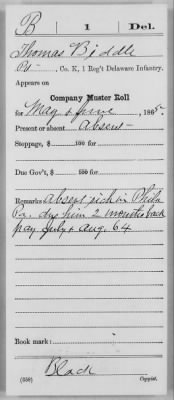 B 1 Del.
Thomas Biddle
Pvt, Co. K, 1 Reg't Delaware Infantry.
Appears on
Company Muster Roll
for May & June, 1865.
Present or absent Absent
Stoppage, $ 100 for
Due Gov't, $ 100 for
Remarks Absent sick in Phila
Pa. due him 2 months back
pay July & Aug. 64
Book mark:
Black
(358) Copyist.